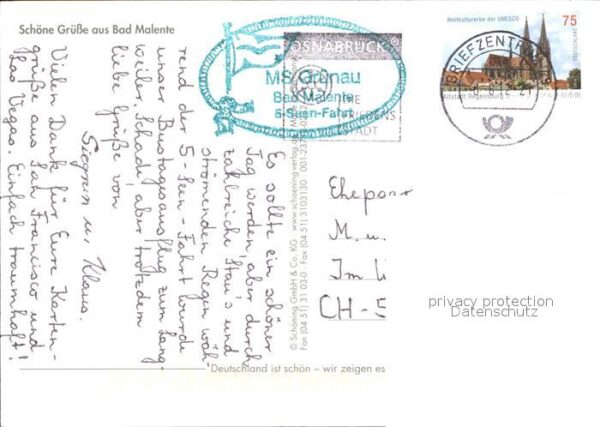 Schöne Grüße aus Bad Malente
Es sollte ein schöner
Tag werden, aber durch
zahlreiche Stau's und
strömenden Regen wäh-
rend der 5-Seen-Fahrt wurde
unser Bustagesausflug zum Lang-
weiler. Schade, aber trotzdem
liebe Grüße von
Siegrun u. Klaus.
Vielen Dank für Eure Karten-
grüße aus San Francisco und
Las Vegas. Einfach traumhaft!
MS Grünau
Bad Malente
5-Seen-Fahrt
OSNABRÜCK
DIE
FRIEDENS
STADT
Weltkulturerbe der UNESCO
75
DEUTSCHLAND
Altstadt Regensburg
BRIEFZENTRUM
© Schöning GmbH & Co. KG · www.schoening-verlag.de
Fax (04 51) 3 10 30 · Fax (04 51) 31 03-0
Ehepaar
M. u.
Im
CH-5
privacy protection
Datenschutz
Deutschland ist schön – wir zeigen es